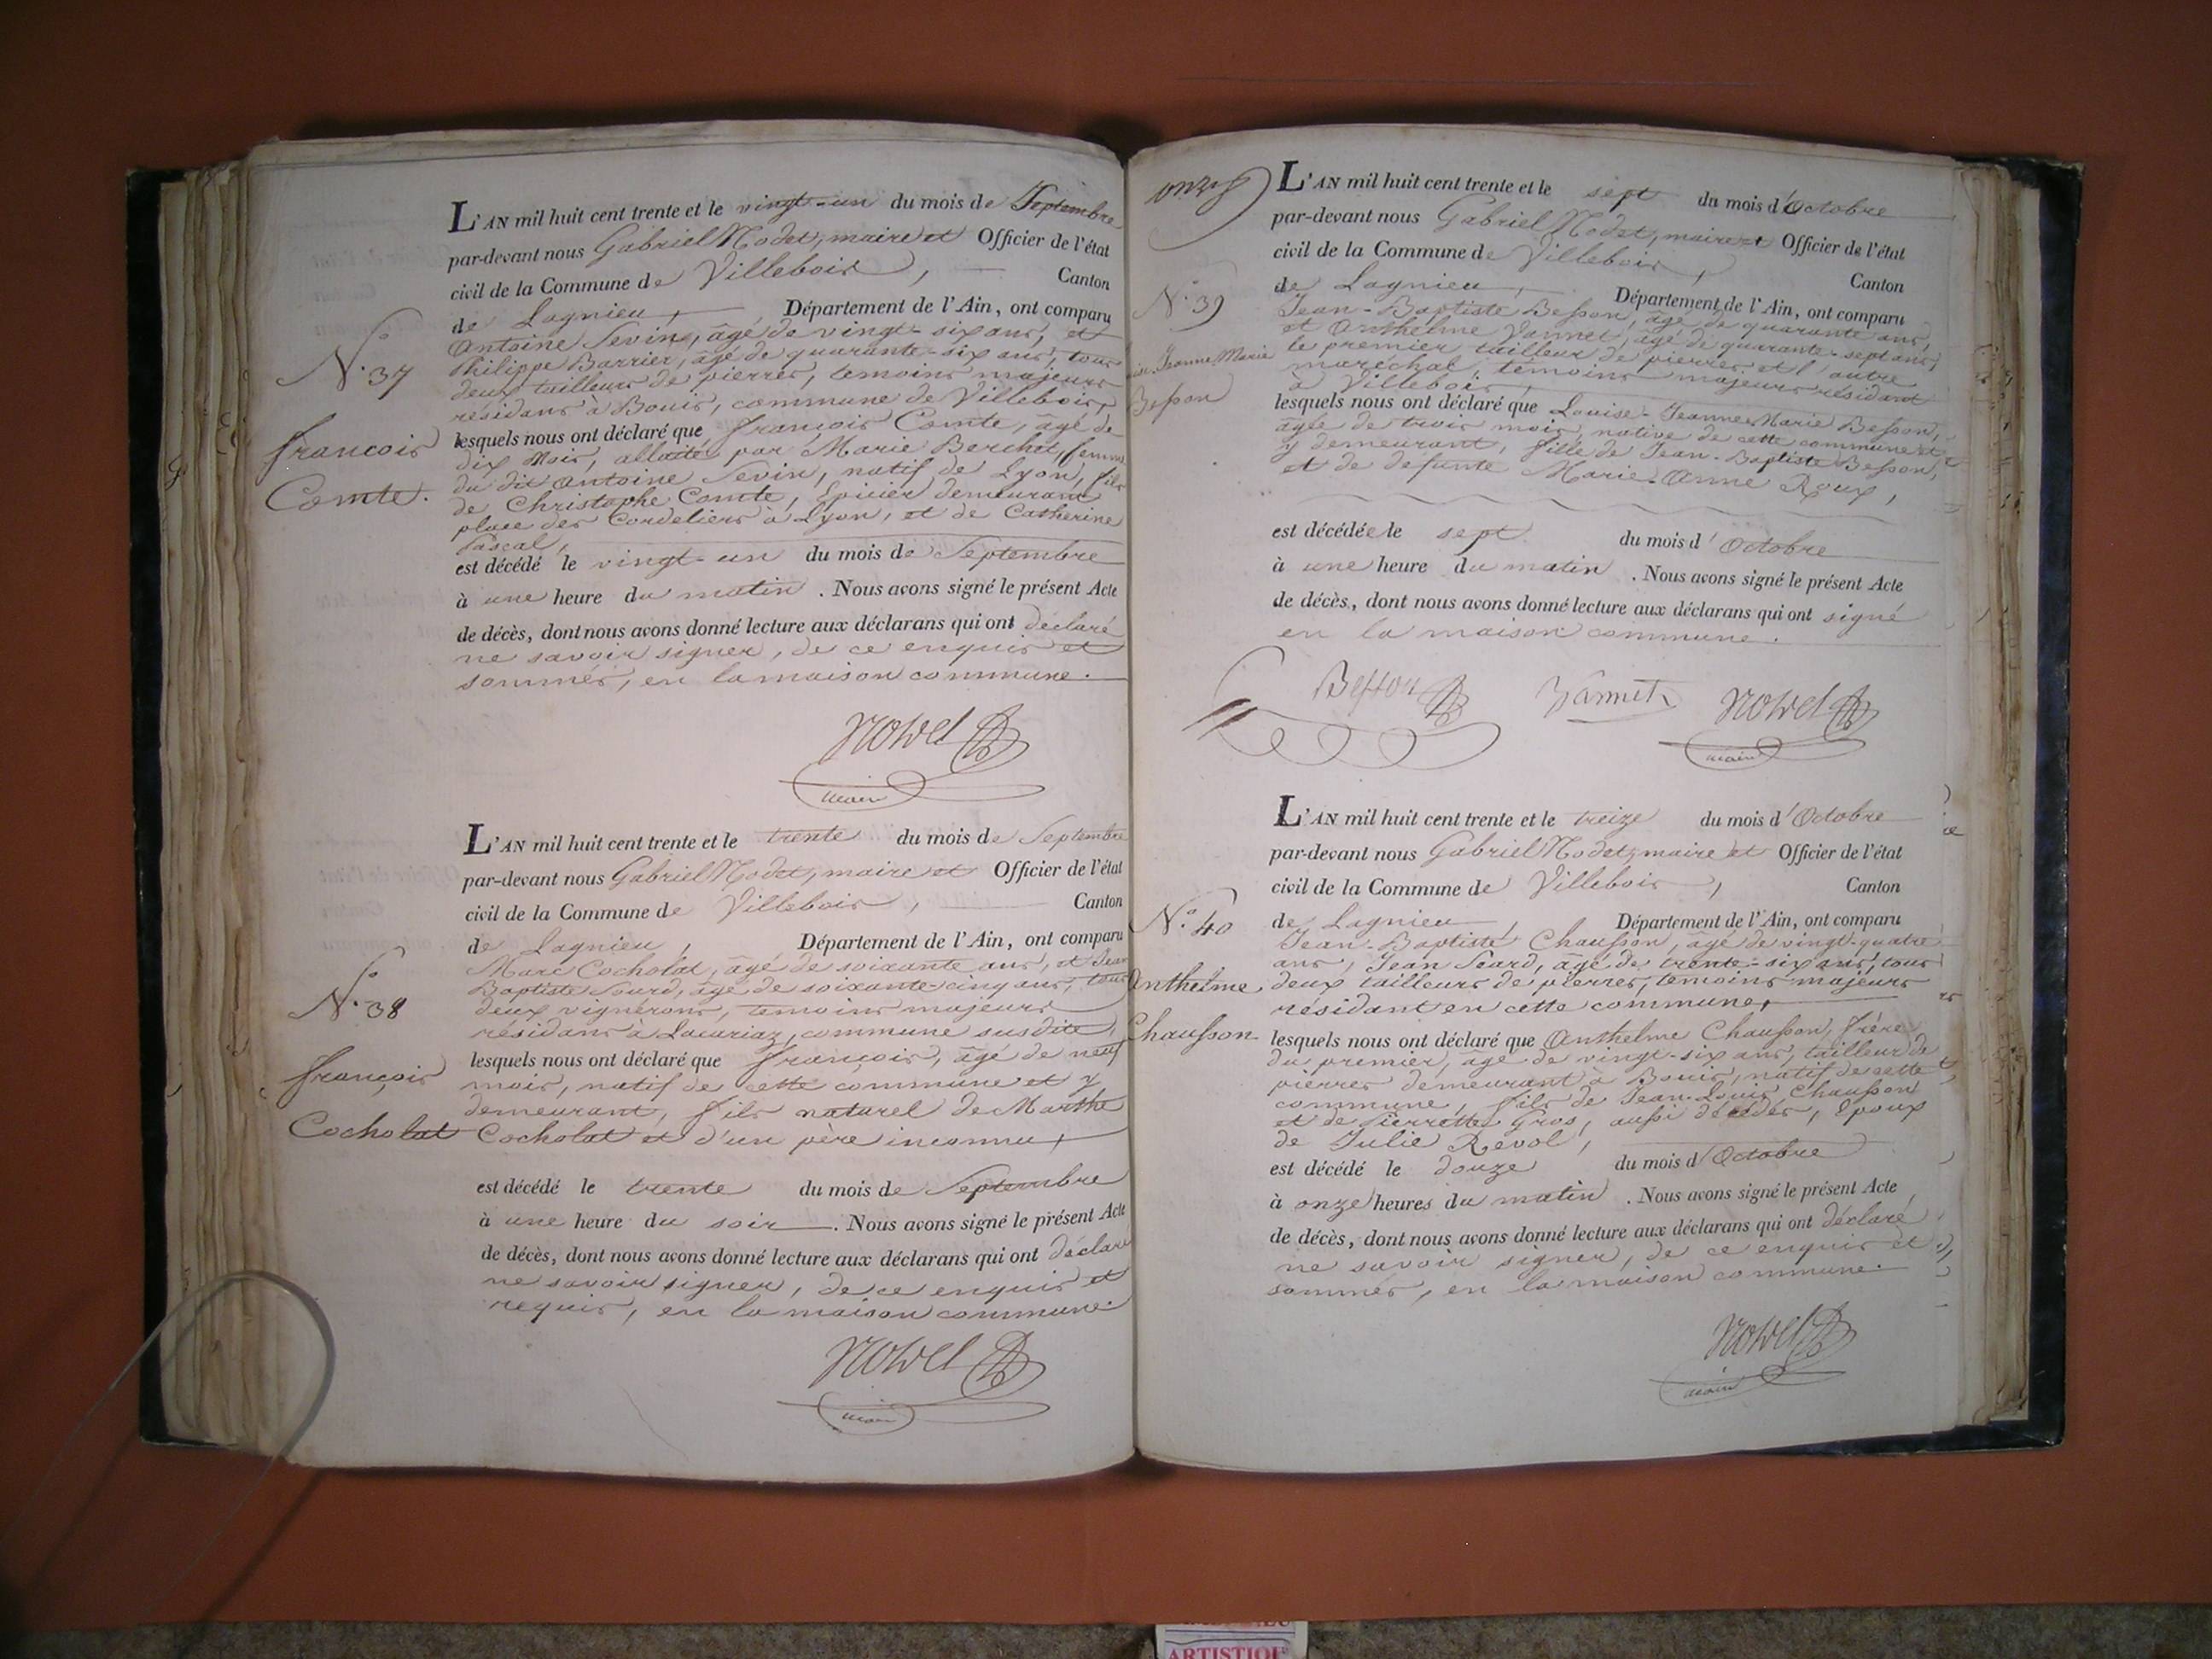 N.º 37
François
Comte.
L'AN mil huit cent trente et le vingt-un du mois de Septembre
par-devant nous Gabriel Nodet, maire et Officier de l'état
civil de la Commune de Villebois, Canton
de Lagnieu, Département de l'Ain, ont comparu
Antoine Sevin, âgé de vingt-six ans, et
Philippe Barrier, âgé de quarante-six ans, tous
deux tailleurs de pierres, temoins majeurs
résidans à Bouis, commune de Villebois,
lesquels nous ont déclaré que François Comte, âgé de
dix Mois, allaité par Marie Berchet, femme
du dit Antoine Sevin, natif de Lyon, fils
de Christophe Comte, Epicier demeurant
place des Cordeliers à Lyon, et de Catherine
Pascal,
est décédé le vingt-un du mois de Septembre
à une heure du matin. Nous avons signé le présent Acte
de décès, dont nous avons donné lecture aux déclarans qui ont déclaré
ne savoir signer, de ce enquis et
sommés, en la maison commune.
maire
N.º 38
François
Cocholat
L'AN mil huit cent trente et le trente du mois de Septembre
par-devant nous Gabriel Nodet, maire et Officier de l'état
civil de la Commune de Villebois, Canton
de Lagnieu, Département de l'Ain, ont comparu
Marc Cocholat, âgé de soixante ans, et Jean
Baptiste Sourd, âgé de soixante-cinq ans, tous
deux vignerons, temoins majeurs
résidans à commune susdite,
lesquels nous ont déclaré que François, âgé de neuf
mois, natif de cette commune et y
demeurant, fils naturel de Marthe
Cocholat et d'un père inconnu,
est décédé le trente du mois de Septembre
à une heure du soir. Nous avons signé le présent Acte
de décès, dont nous avons donné lecture aux déclarans qui ont déclaré
ne savoir signer, de ce enquis et
requis, en la maison commune.
maire
onze
N.º 39
Jeanne Marie
Besson
L'AN mil huit cent trente et le sept du mois d'Octobre
par-devant nous Gabriel Nodet, maire et Officier de l'état
civil de la Commune de Villebois, Canton
de Lagnieu, Département de l'Ain, ont comparu
Jean-Baptiste Besson, âgé de quarante ans,
et Anthelme Vannet, âgé de quarante-sept ans,
le premier tailleur de pierres et l'autre
maréchal, temoins majeurs résidant
à Villebois,
lesquels nous ont déclaré que Louise-Jeanne Marie Besson,
âgée de trois mois, native de cette commune et
y demeurant, fille de Jean-Baptiste Besson,
et de defunte Marie-Anne Roux,
est décédée le sept du mois d'Octobre
à une heure du matin. Nous avons signé le présent Acte
de décès, dont nous avons donné lecture aux déclarans qui ont signé
en la maison commune.
Besson Vannet
maire
N.º 40
Anthelme
Chausson
L'AN mil huit cent trente et le treize du mois d'Octobre
par-devant nous Gabriel Nodet, maire et Officier de l'état
civil de la Commune de Villebois, Canton
de Lagnieu, Département de l'Ain, ont comparu
Jean-Baptiste Chausson, âgé de vingt-quatre
ans, Jean Seard, âgé de trente-six ans, tous
deux tailleurs de pierres, temoins majeurs
résidant en cette commune,
lesquels nous ont déclaré que Anthelme Chausson, frère
du premier, âgé de vingt-six ans, tailleur de
pierres demeurant à Bouis, natif de cette
commune, fils de Jean-Louis Chausson
et de Pierrette Gros, aussi décédés, Epoux
de Julie Revol,
est décédé le douze du mois d'Octobre
à onze heures du matin. Nous avons signé le présent Acte
de décès, dont nous avons donné lecture aux déclarans qui ont déclaré
ne savoir signer, de ce enquis et
sommés, en la maison commune.
maire